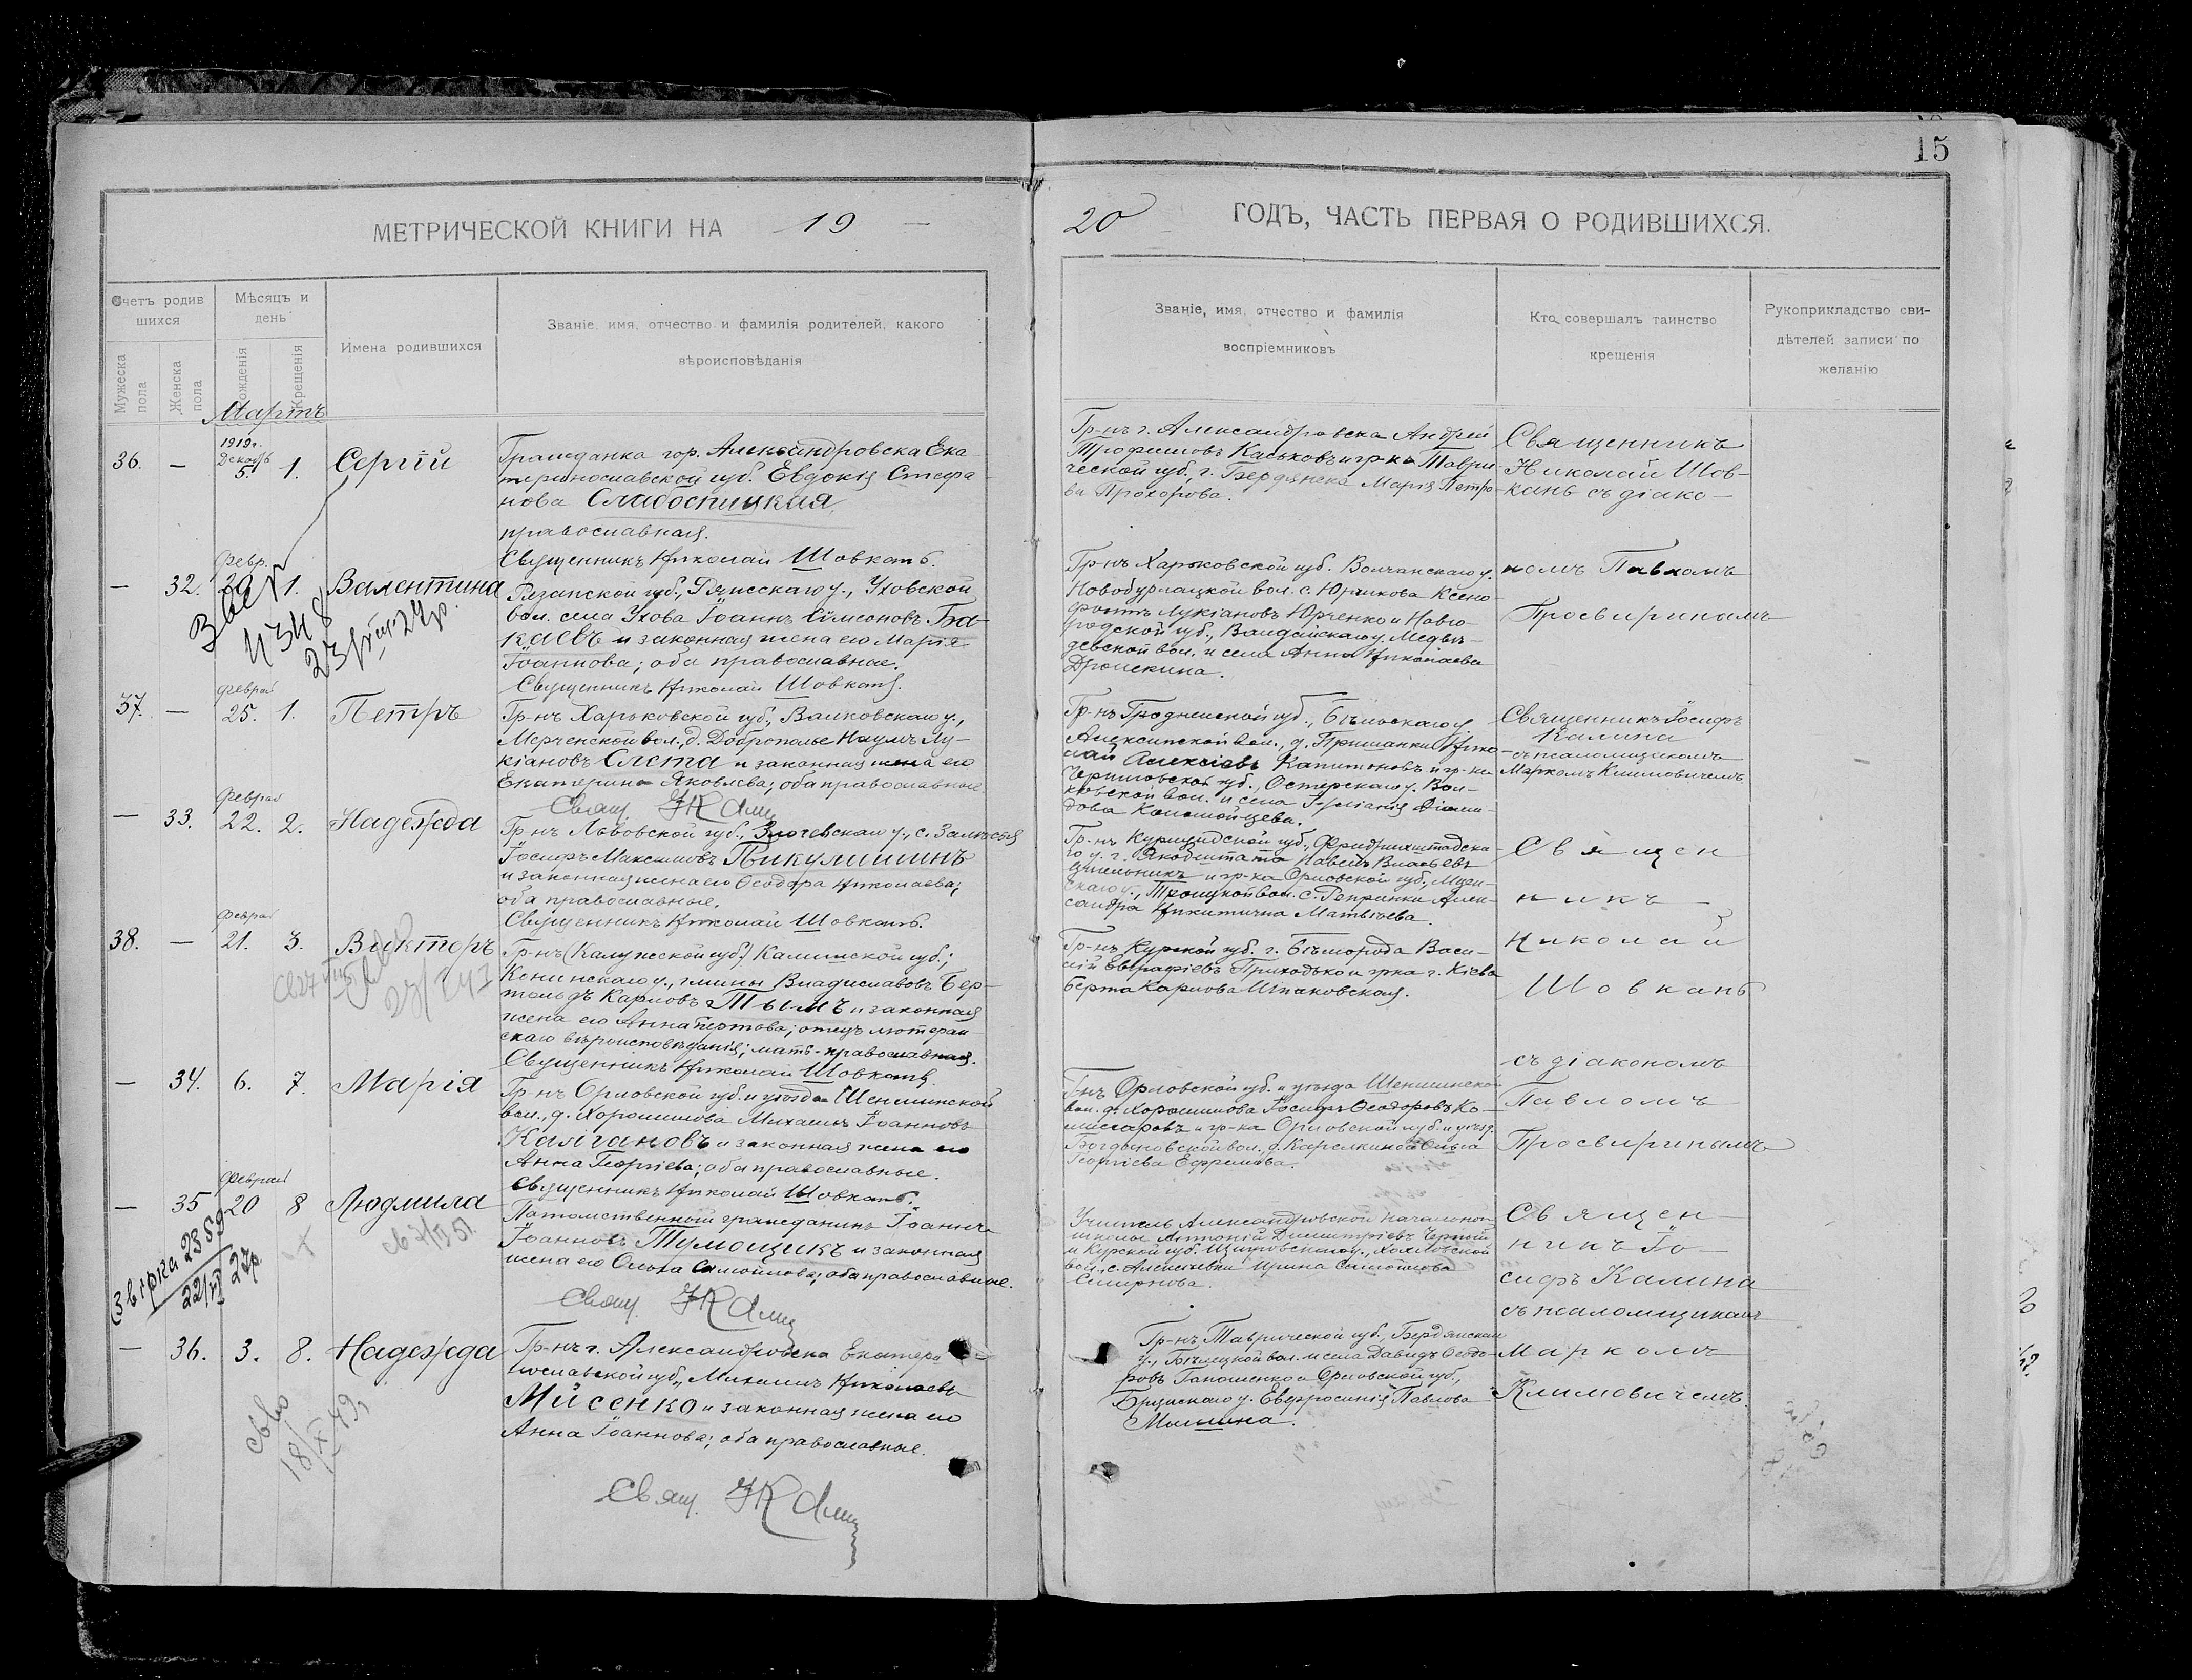 15
МЕТРИЧЕСКОЙ КНИГИ НА 19
20 ГОДЪ, ЧАСТЬ ПЕРВАЯ О РОДИВШИХСЯ.
Счетъ родив
шихся
Мужеска пола
Женска пола
Мѣсяцъ и
день
Рожденія
Крещенія
Имена родившихся
Званіе, имя, отчество и фамилія родителей, какого
вѣроисповѣданія
Званіе, имя, отчество и фамилія
воспріемниковъ
Кто совершалъ таинство
крещенія
Рукоприкладство сви-
дѣтелей записи по
желанію
Мартъ
36. — 1919г. Декабъ 5. 1. Сергій
Гражданка гор. Александровска Ека-
теринославской губ. Евдокія Стефа-
нова Сладоспицкая,
православная.
Священникъ Николай Шовкапь.
Гр-нъ г. Александровска Андрей
Трофимовъ Каськовъ и гр-ка Таври-
ческой губ. г. Бердянска Марія Петро-
ва Прохорова.
Священникъ
Николай Шов-
капь съ діако-
— 32. Февр. 20 1. Валентина
Рязанской губ., Ряжскаго у., Уховской
вол. села Ухова Іоаннъ Симеоновъ Ба-
каевъ и законная жена его Марія
Іоаннова; оба православные.
Священникъ Николай Шовкапь.
4348
Гр-нъ Харьковской губ. Волчанскаго у.
Новобурлацкой вол. с. Юрчикова Ксено-
фонтъ Лукіановъ Юрченко и Новго-
родской губ., Валдайскаго у. Медвѣ-
девской вол. и села Анна Николаева
номъ Павломъ
Просвиринымъ
37. — Феврал 25. 1. Петръ
Гр-нъ Харьковской губ., Валковскаго у.,
Мерченской вол., д. Доброполье Наумъ Лу-
кіановъ Слета и законная жена его
Екатерина Яковлева; оба православные.
Свящ.
Гр-нъ Гродненской губ., Бѣльскаго у.
лай Алексіевъ Капитоновъ и гр-ка
Черниговской губ., Остерскаго у.
Священникъ Іосифъ
Калина
съ псаломщикомъ
Маркомъ Климовичемъ
— 33. Феврал 22. 2. Надежда
Гр-нъ Львовской губ., Злочевскаго у., с. Залѣсья
Іосифъ Максимовъ Пикулишинъ
и законная жена его Ѳеодора Николаева;
оба православные.
Священникъ Николай Шовкапь.
Гр-нъ Курляндской губ., Фридрихштадска-
го у. г. Якобштата Павелъ Власьевъ
и гр-ка Орловской губ., Мцен-
скаго у., Троицкой вол. с. Репринки Алек-
сандра Никитична Матвѣева.
Священ
никъ
38. — Феврал 21. 3. Викторъ
Гр-нъ (Калужской губ.) Калишской губ.;
Конинскаго у., гмины Владиславовъ Бер-
тольдъ Карловъ Тымъ и законная
жена его Анна; отецъ лютеран-
скаго вѣроисповѣданія; мать - православная.
Священникъ Николай Шовкапь.
Гр-нъ Курской губ. г. Бѣлгорода Васи-
лій Евграфіевъ Приходько и гр-ка г. Кіева
Берта Карлова Шпаковская.
Николай
Шовкапь
— 34. 6. 7. Марія
Гр-нъ Орловской губ. и уѣзда Шеншинской
вол., д. Хорошилова Михаилъ Іоанновъ
Калгановъ и законная жена его
Анна Георгіева; оба православные.
Священникъ Николай Шовкапь.
Гр-нъ Орловской губ. и уѣзда Шеншинской
вол. д. Хорошилова Іосифъ Ѳеодоровъ Ко-
миссаровъ и гр-ка Орловской губ. и уѣзд.
Богдановской вол., д. Карелкиной Ольга
Георгіева Ефремова.
съ діакономъ
Павломъ
Просвиринымъ
— 35 Феврал 20 8 Людмила
Потомственный гражданинъ Іоаннъ
Іоанновъ Тумощикъ и законная
жена его Ольга Самойлова; оба православные.
Свящ.
Звірка 2359
22/VI 27р
Учитель Александровской начальной
школы Антоній Димитріевъ Черный
и Курской губ. Щигровскаго у., Хохловской
вол., с. Алексѣевки Ирина Самойлова
Смирнова.
Священ-
никъ Іо-
сифъ Калина
съ псаломщикомъ
— 36. 3. 8. Надежда
Гр-нъ г. Александровска Екатери-
нославской губ., Михаилъ Николаевъ
Мисенко и законная жена его
Анна Іоаннова; оба православные.
Свящ.
18/X 49
Гр-нъ Таврической губ., Бердянскаго
у., вол. и села Давидъ Ѳеодо-
ровъ Гапоненко и Орловской губ.,
Брянскаго у. Евфросинія Павлова
Мишина.
Маркомъ
Климовичемъ.